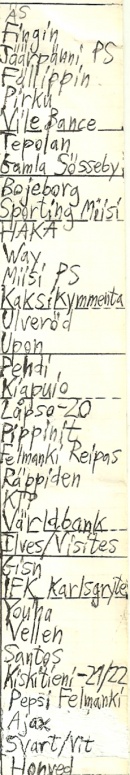 AS
Fingin
Säärpauni PS
Fullippin
Pirku
Vile Bance
Tepolan
Gamla Sösseby
Bojeborg
Sporting Miisi
HAKA
Way
Miisi PS
Kaksikymmentä
Ulveröd
Upon
Pehdi
Kiapulo
Lapso-20
Pippinit
Felmanki Reipas
Räppiden
KTP
Världabank
Ilves/Nisites
Gisn
IFK Karlsgryte
Youha
Vellen
Santos
Kiskitieni-21/22
Pepsi Felmanki
Ajax
Svart/Vit
Honved